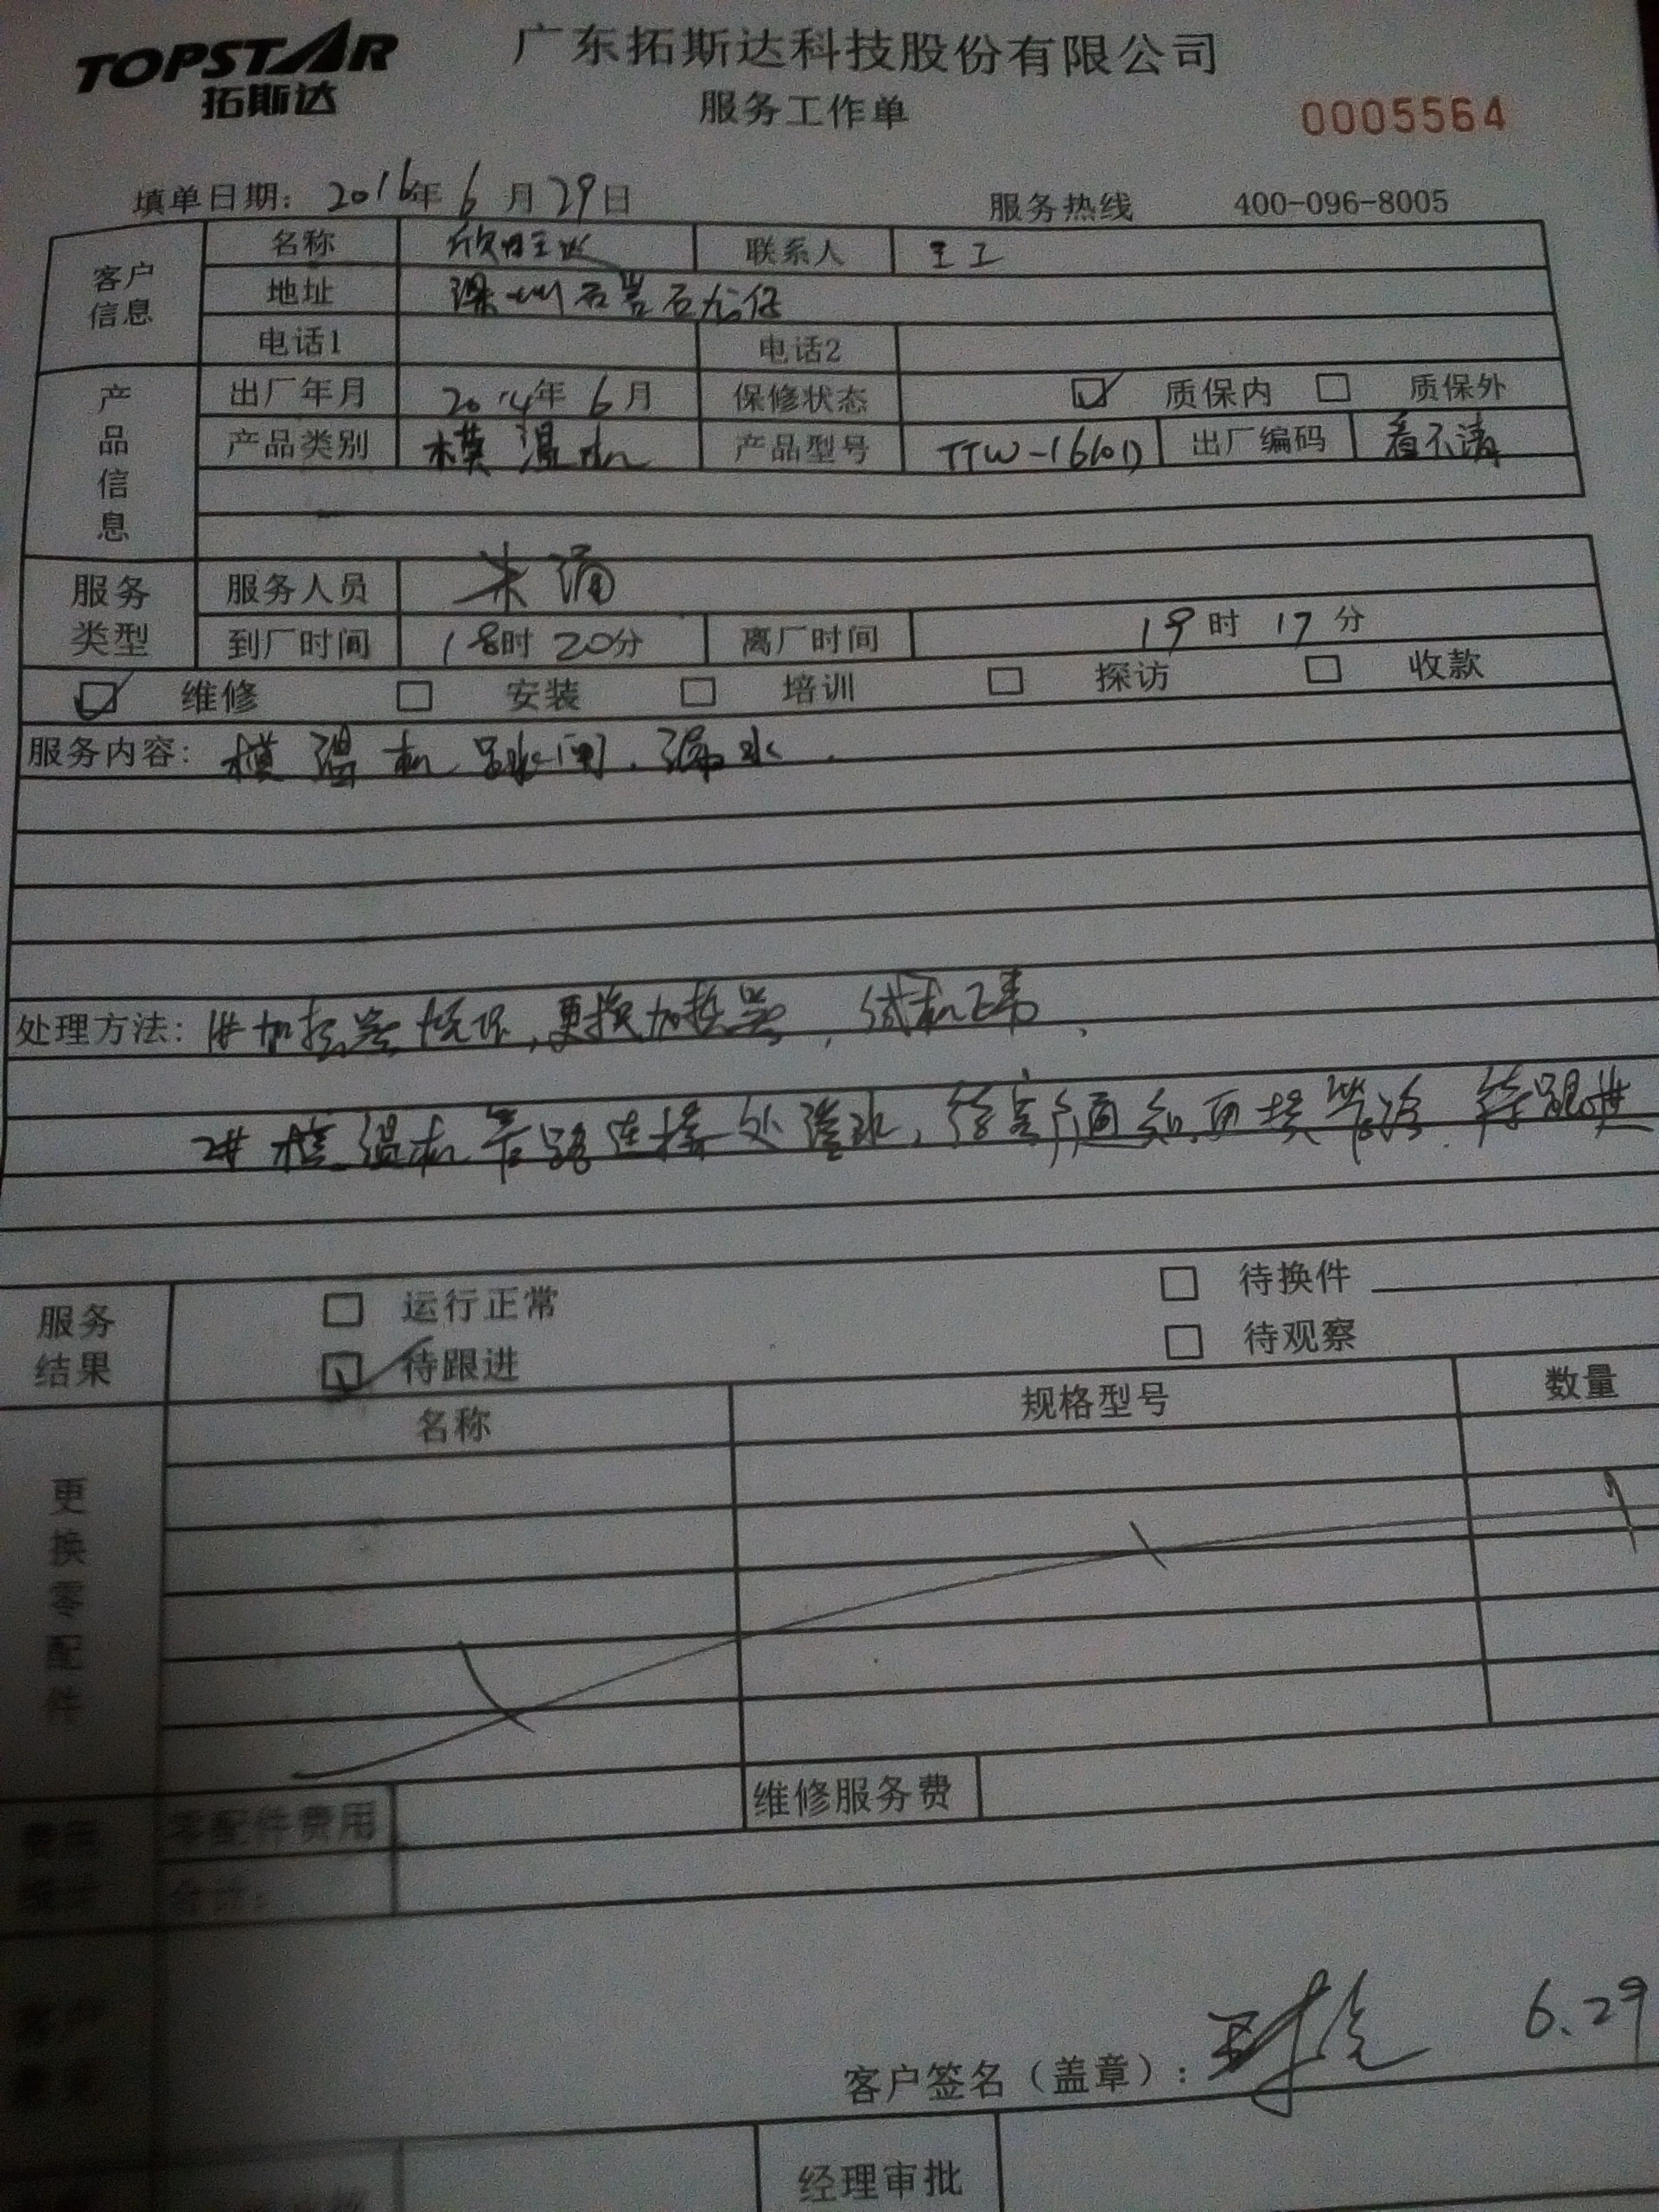 TOPSTAR
拓斯达
广东拓斯达科技股份有限公司
服务工作单
0005564
填单日期: 2016年 6月 29日 服务热线 400-096-8005
客户信息
名称 联系人 王工
地址 深圳石岩石龙仔
电话1 电话2
产品信息
出厂年月 2014年 6月 保修状态 质保内 质保外
产品类别 模温机 产品型号 TTW-1660D 出厂编码 看不清
服务类型
服务人员 朱涌
到厂时间 18时 20分 离厂时间 19时 17分
维修 安装 培训 探访 收款
服务内容: 模温机 闸, 漏水.
处理方法: 1# 加热器烧坏, 更换加热器, 试机正常,
2# 模温机管路连接处渗水, 待客户通知再换 待跟进
服务结果
运行正常 待换件
待跟进 待观察
更换零配件
名称 规格型号 数量
零配件费用 维修服务费
客户签名（盖章）: 6.29
经理审批